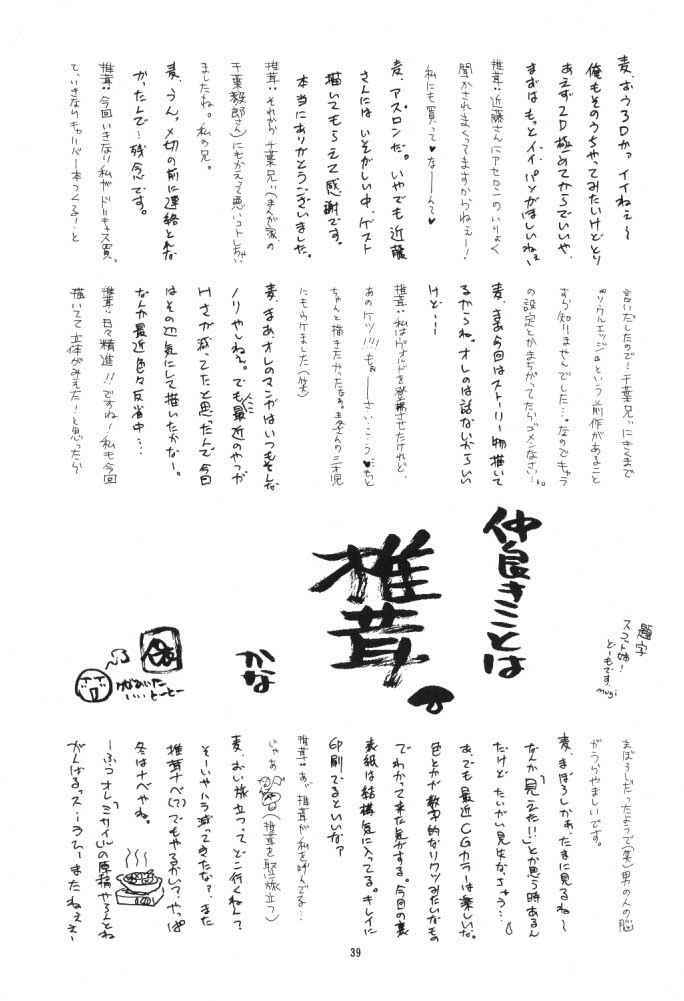 麦、おう3Dかっ イイねぇ〜
俺もそのうちやってみたいけどとり
あえず2D極めてからでいいや、
まずは もっとイイパソがほしいねぇ
椎茸:近藤さんにアセロンのいりょく
聞かされまくってますからねぇー!
私にも買って♥な——んて♥
麦、アスロンだ。いやでも近藤
さんには いそがしい中、ゲスト
描いてもらえて感謝です。
本当にありがとうございました。
椎茸:それから 千葉兄ぃ(まんが家の
千葉毅郎さん)にもかえて悪いコトしちゃい
ましたね。私の兄。
麦、うん。〆切の前に連絡とれな
かったんで…残念です。
椎茸:今回いきなり私がドリキャス買、
て、いきなりキャリバー本つくる!と
言いだしたので…千葉兄ぃにきくまで
『ソウルエッジ』という前作があること
すら知りませんでした…。なのでキャラ
の設定とかまちがってたらゴメンなさい…。
麦、まあ今回はストーリー物描いて
るからね。オレのは話ないからいい
けど…
椎茸:私はヴォルドを登場させたけれど、
あのケツ!!!もぉ——さいこう♥もと
ちゃんと描きたかったなぁ。麦さんの三才児
にもウケました(笑)
麦、まあ、オレのマンガはいつもそんな
ノリやしねぇ。でも最近のやつが
Hさが減ってたと思ったんで今回
はその辺気にして描いたかなー。
なんか最近色々反省中…
椎茸:日々精進!!ですね!私も今回
描いてて立体がみえた!と思ったら
仲良きことは
椎茸
かな
題字
スコット姉!
どーもです。
mugi
まぼろしだったようで(笑)男の人の脳
がうらやましいです。
麦、まぼろしかあ、たまに見るね〜
なんか「見えた!!」とか思う時あるん
だけど たいがい見失なっちゃう…
あ、でも最近CGカラーは楽しいな。
色とかが数字的なリクツみたいなもの
でわかって来た気がする。今回の裏
表紙は結構気に入ってる。キレイに
印刷でるといいな?
椎茸:あ゛、椎茸が私を呼んでる…
じゃあ(椎茸を堅に旅立つ)
麦、おい旅立つってどこ行くねん?
そーいやハラ減ってきたな?、また
椎茸ナベ(?)でもやるかい?、やっぱ
冬はナベやね。
ーふっ オレ「ミサイル」の原稿やろんとね
がんばるっス…うひー またねぇぇ〜
39